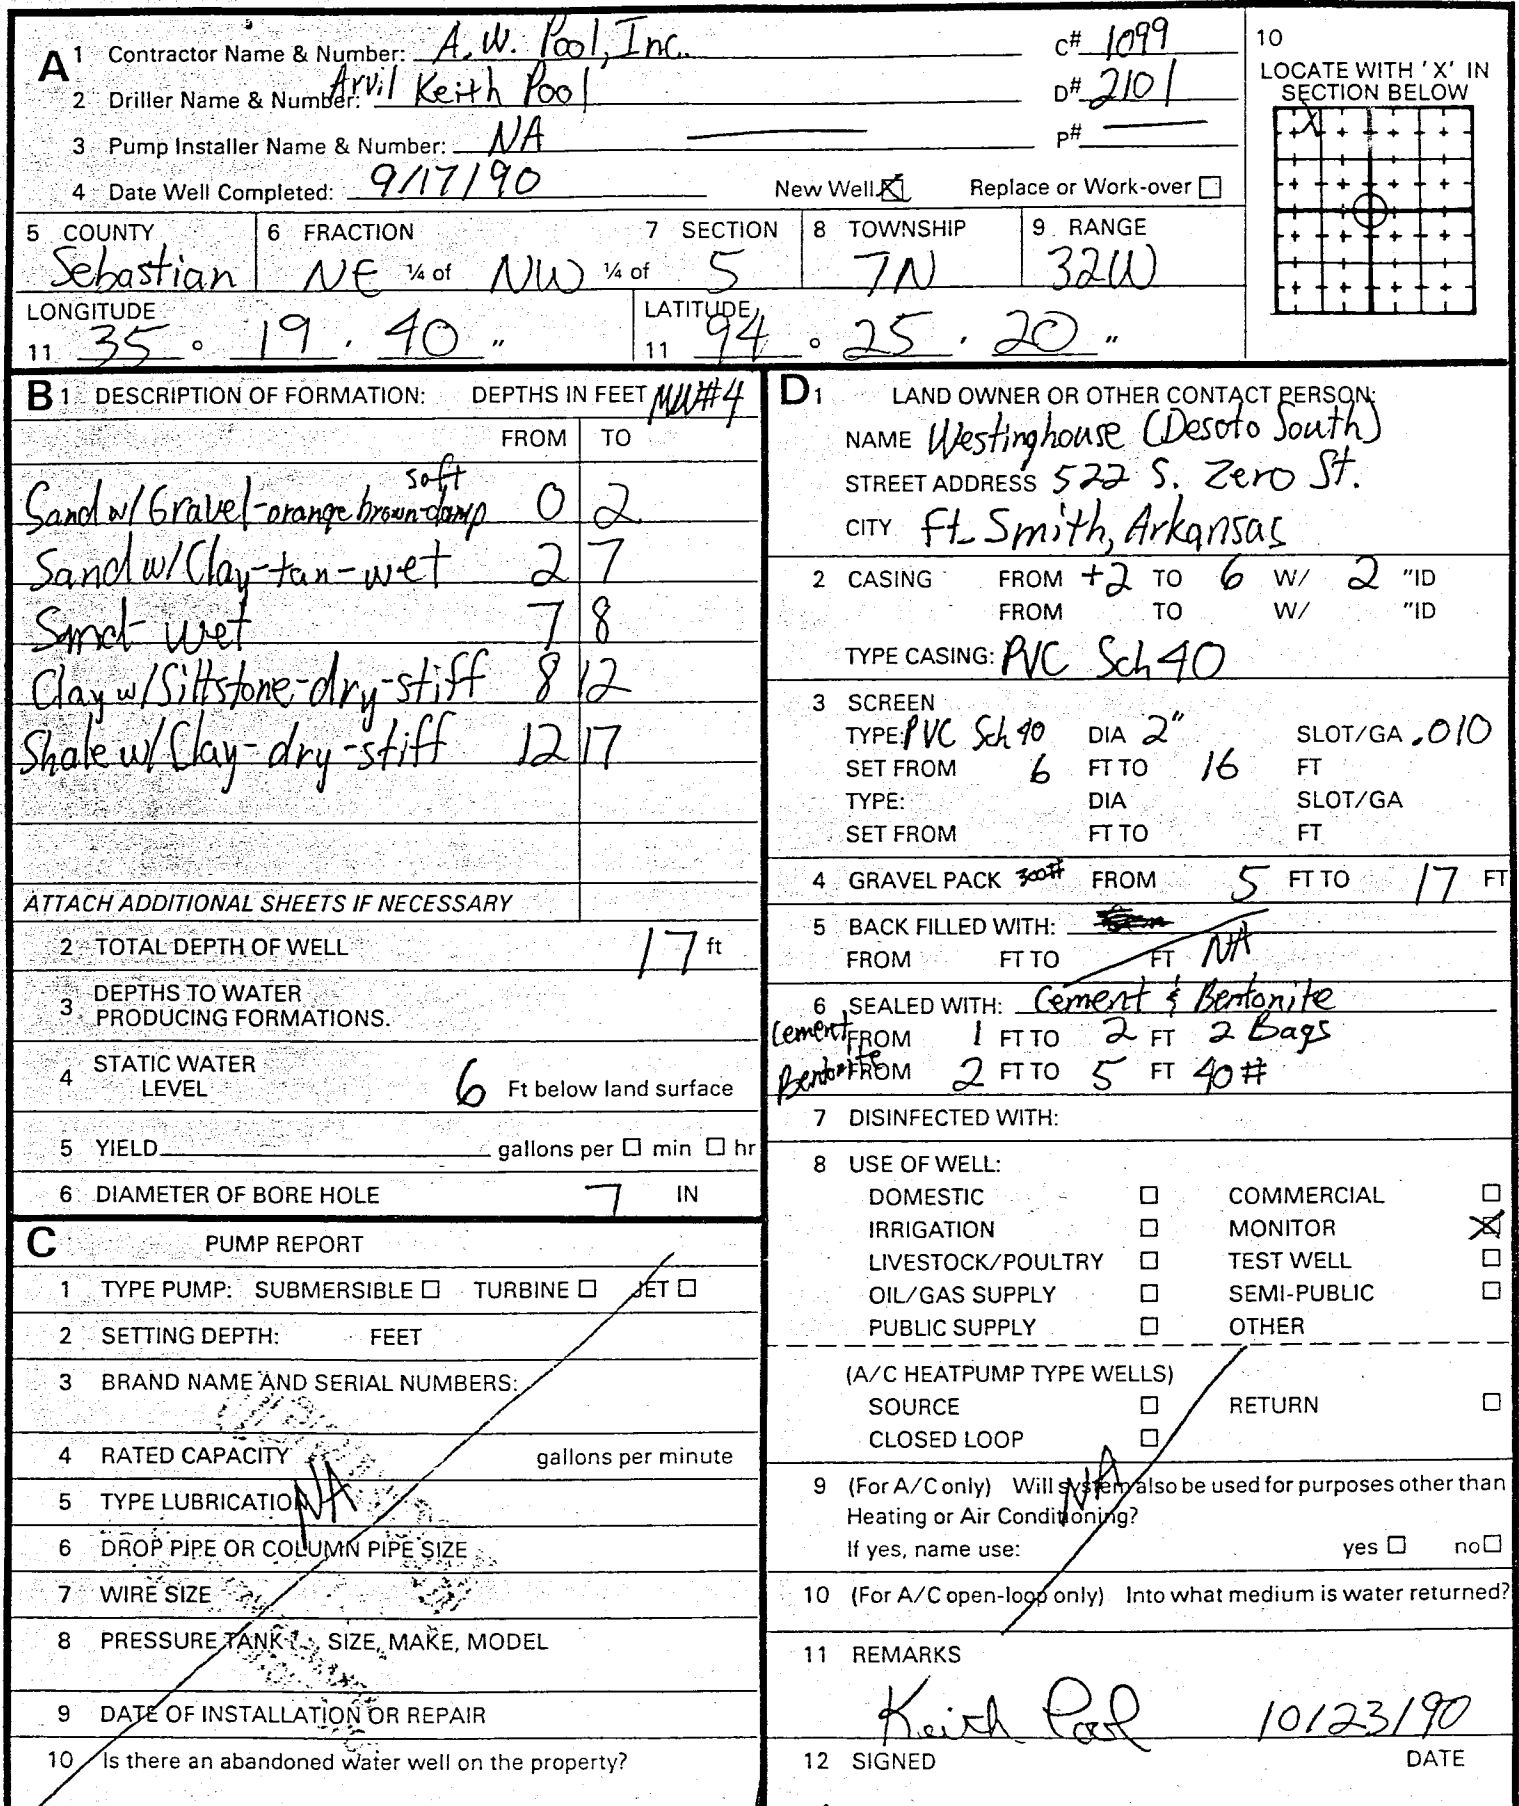 A 1 Contractor Name & Number: A.W. Pool, Inc. C# 1099
2 Driller Name & Number: Arvil Keith Pool D# 2101
3 Pump Installer Name & Number: NA P#
4 Date Well Completed: 9/17/90 New Well X Replace or Work-over
10
LOCATE WITH 'X' IN
SECTION BELOW
X
5 COUNTY 6 FRACTION 7 SECTION 8 TOWNSHIP 9 RANGE
Sebastian NE ¼ of NW ¼ of 5 7N 32W
LONGITUDE LATITUDE
11 35 ° 19 ' 40 " 11 94 ° 25 ' 20 "
B 1 DESCRIPTION OF FORMATION: DEPTHS IN FEET MW#4
FROM TO
soft
Sand w/ Gravel-orange brown-damp 0 2
Sand w/ Clay-tan-wet 2 7
Sand-wet 7 8
Clay w/ Siltstone-dry-stiff 8 12
Shale w/ Clay-dry-stiff 12 17
ATTACH ADDITIONAL SHEETS IF NECESSARY
2 TOTAL DEPTH OF WELL 17 ft
3 DEPTHS TO WATER
PRODUCING FORMATIONS.
4 STATIC WATER
LEVEL 6 Ft below land surface
5 YIELD gallons per min hr
6 DIAMETER OF BORE HOLE 7 IN
C PUMP REPORT
1 TYPE PUMP: SUBMERSIBLE TURBINE JET
2 SETTING DEPTH: FEET
3 BRAND NAME AND SERIAL NUMBERS:
4 RATED CAPACITY gallons per minute
5 TYPE LUBRICATION NA
6 DROP PIPE OR COLUMN PIPE SIZE
7 WIRE SIZE
8 PRESSURE TANK SIZE, MAKE, MODEL
9 DATE OF INSTALLATION OR REPAIR
10 Is there an abandoned water well on the property?
D 1 LAND OWNER OR OTHER CONTACT PERSON:
NAME Westinghouse (Desoto South)
STREET ADDRESS 522 S. Zero St.
CITY Ft. Smith, Arkansas
2 CASING FROM +2 TO 6 W/ 2 "ID
FROM TO W/ "ID
TYPE CASING: PVC Sch 40
3 SCREEN
TYPE: PVC Sch 40 DIA 2" SLOT/GA .010
SET FROM 6 FT TO 16 FT
TYPE: DIA SLOT/GA
SET FROM FT TO FT
4 GRAVEL PACK 300# FROM 5 FT TO 17 FT
5 BACK FILLED WITH:
FROM FT TO FT NA
6 SEALED WITH: Cement & Bentonite
Cement FROM 1 FT TO 2 FT 2 Bags
Bentonite FROM 2 FT TO 5 FT 40#
7 DISINFECTED WITH:
8 USE OF WELL:
DOMESTIC COMMERCIAL
IRRIGATION MONITOR X
LIVESTOCK/POULTRY TEST WELL
OIL/GAS SUPPLY SEMI-PUBLIC
PUBLIC SUPPLY OTHER
(A/C HEATPUMP TYPE WELLS)
SOURCE RETURN
CLOSED LOOP
NA
9 (For A/C only) Will system also be used for purposes other than
Heating or Air Conditioning?
If yes, name use: yes no
10 (For A/C open-loop only) Into what medium is water returned?
11 REMARKS
Keith Pool 10/23/90
12 SIGNED DATE